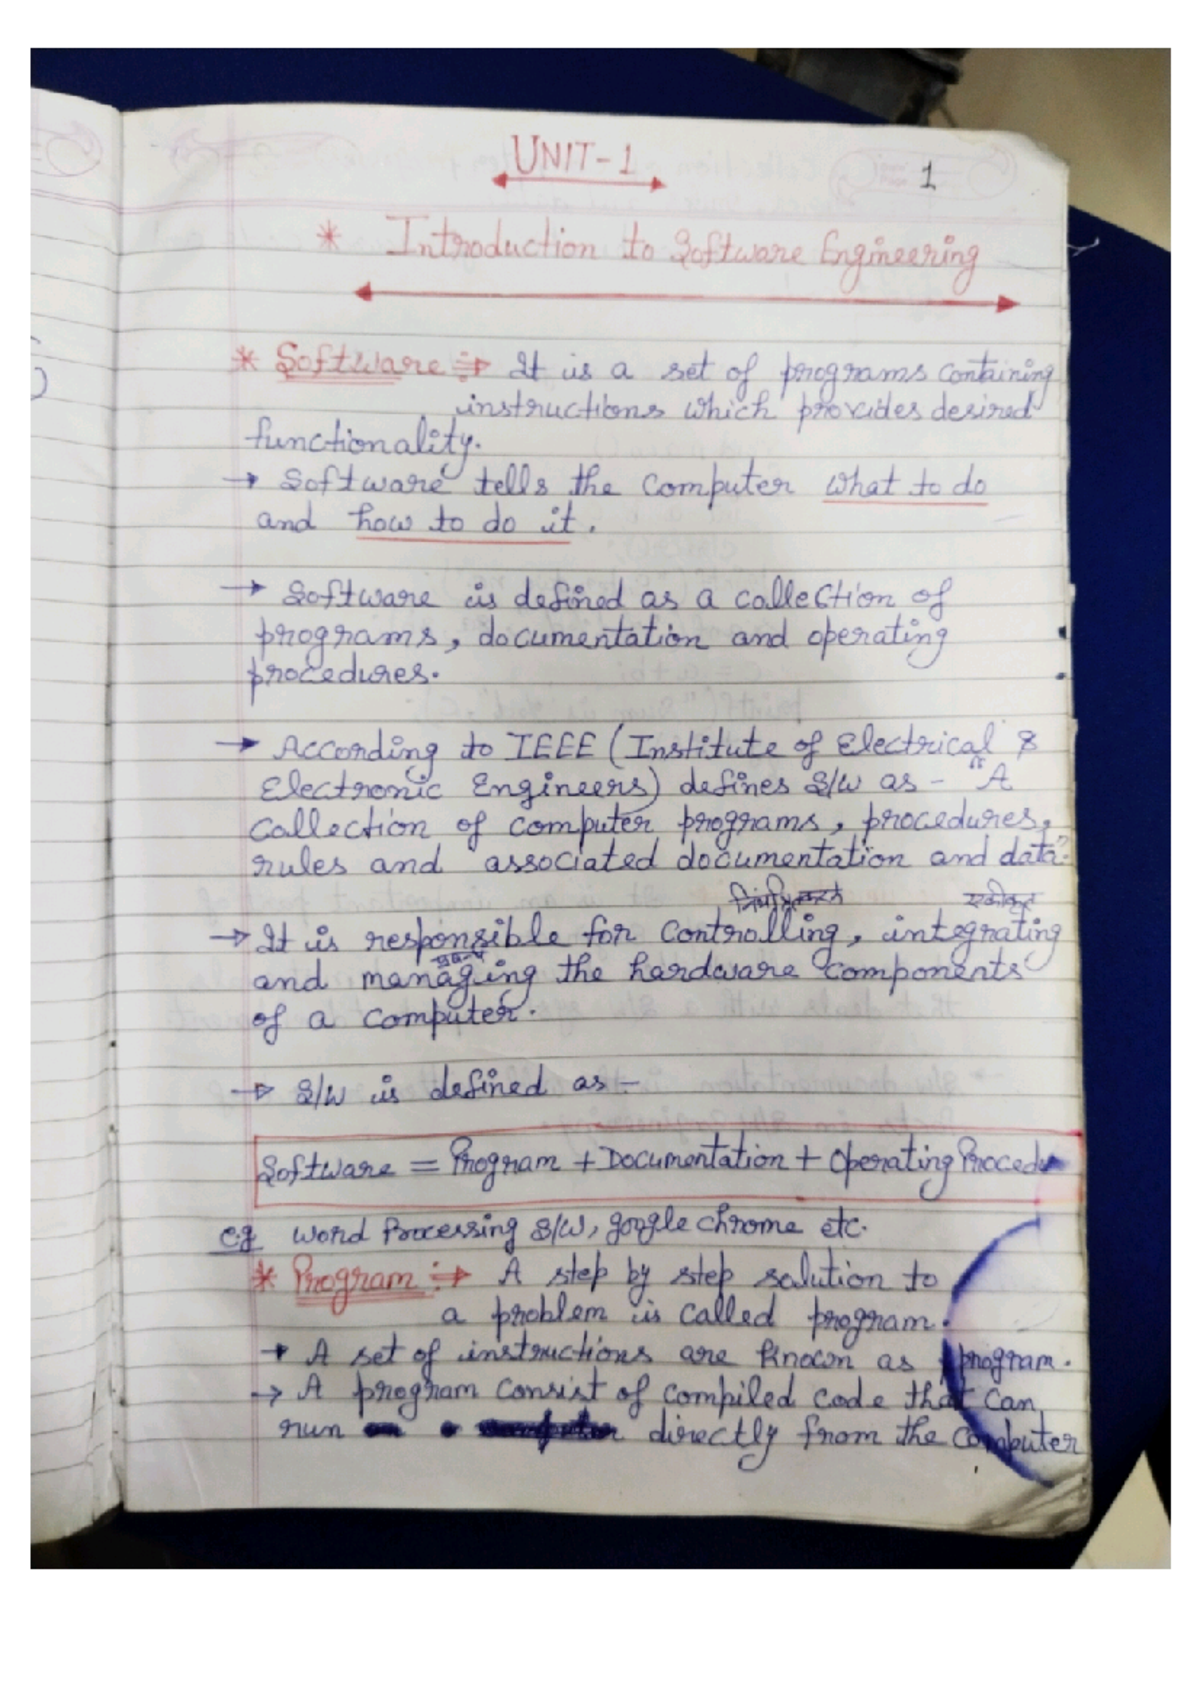 UNIT-1
1
* Introduction to Software Engineering
* Software ⇒ It is a set of programs containing
instructions which provides desired
functionality.
→ Software tells the computer what to do
and how to do it.
→ Software is defined as a collection of
programs, documentation and operating
procedures.
→ According to IEEE (Institute of Electrical &
Electronic Engineers) defines S/W as - "A
collection of computer programs, procedures,
rules and associated documentation and data."
एकीकृत
→ It is responsible for controlling, integrating
प्रबन्ध
and managing the hardware components
of a computer.
→ S/W is defined as -
Software = Program + Documentation + Operating Procedu
eg word Processing S/W, google chrome etc.
* Program ⇒ A step by step solution to
a problem is called program.
→ A set of instructions are known as program.
→ A program consist of compiled code that can
run directly from the computer